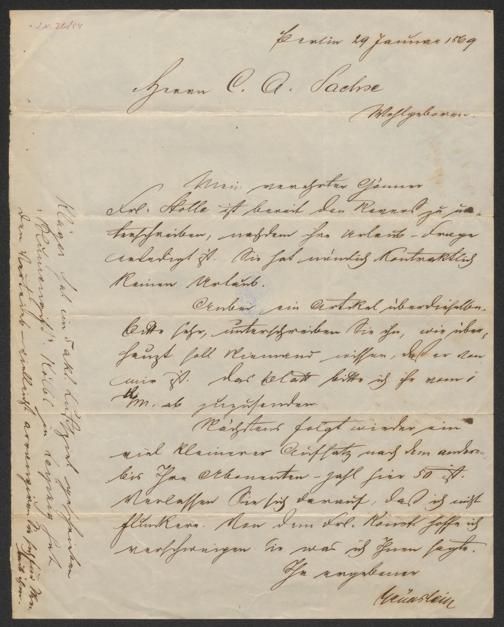 Berlin 29 Januar 1869
Herrn C. A. Sachse
Wohlgeboren.
Mein verehrter Gönner
Frl. Stolle ist bereit den Revers zu un-
terschreiben, nachdem ihre Urlaub-Frage
erledigt ist. Sie hat nämlich Kontraktlich
keinen Urlaub.
Anbei ein Artikel über dieselbe.
Bitte sehr, unterschreiben Sie ihn, wie über-
haupt soll Niemand wissen, daß er von
mir ist. Das Blatt bitte ich Ihr vom 1
M. ab zuzusenden
Nächstens folgt wieder ein
viel kleinerer Aufsatz nach dem andern
bis Ihre Abonenten-Zahl hier 50 ist.
Verlassen Sie sich darauf, daß ich nicht
flunkere. Von dem Frl. hoffe ich
verschweigen Sie was ich Ihnen sagte.
Ihr ergebener
Klager hat ein 5 akt. Lustspiel geschrieben
in Leipzig hat
den Vertrieb